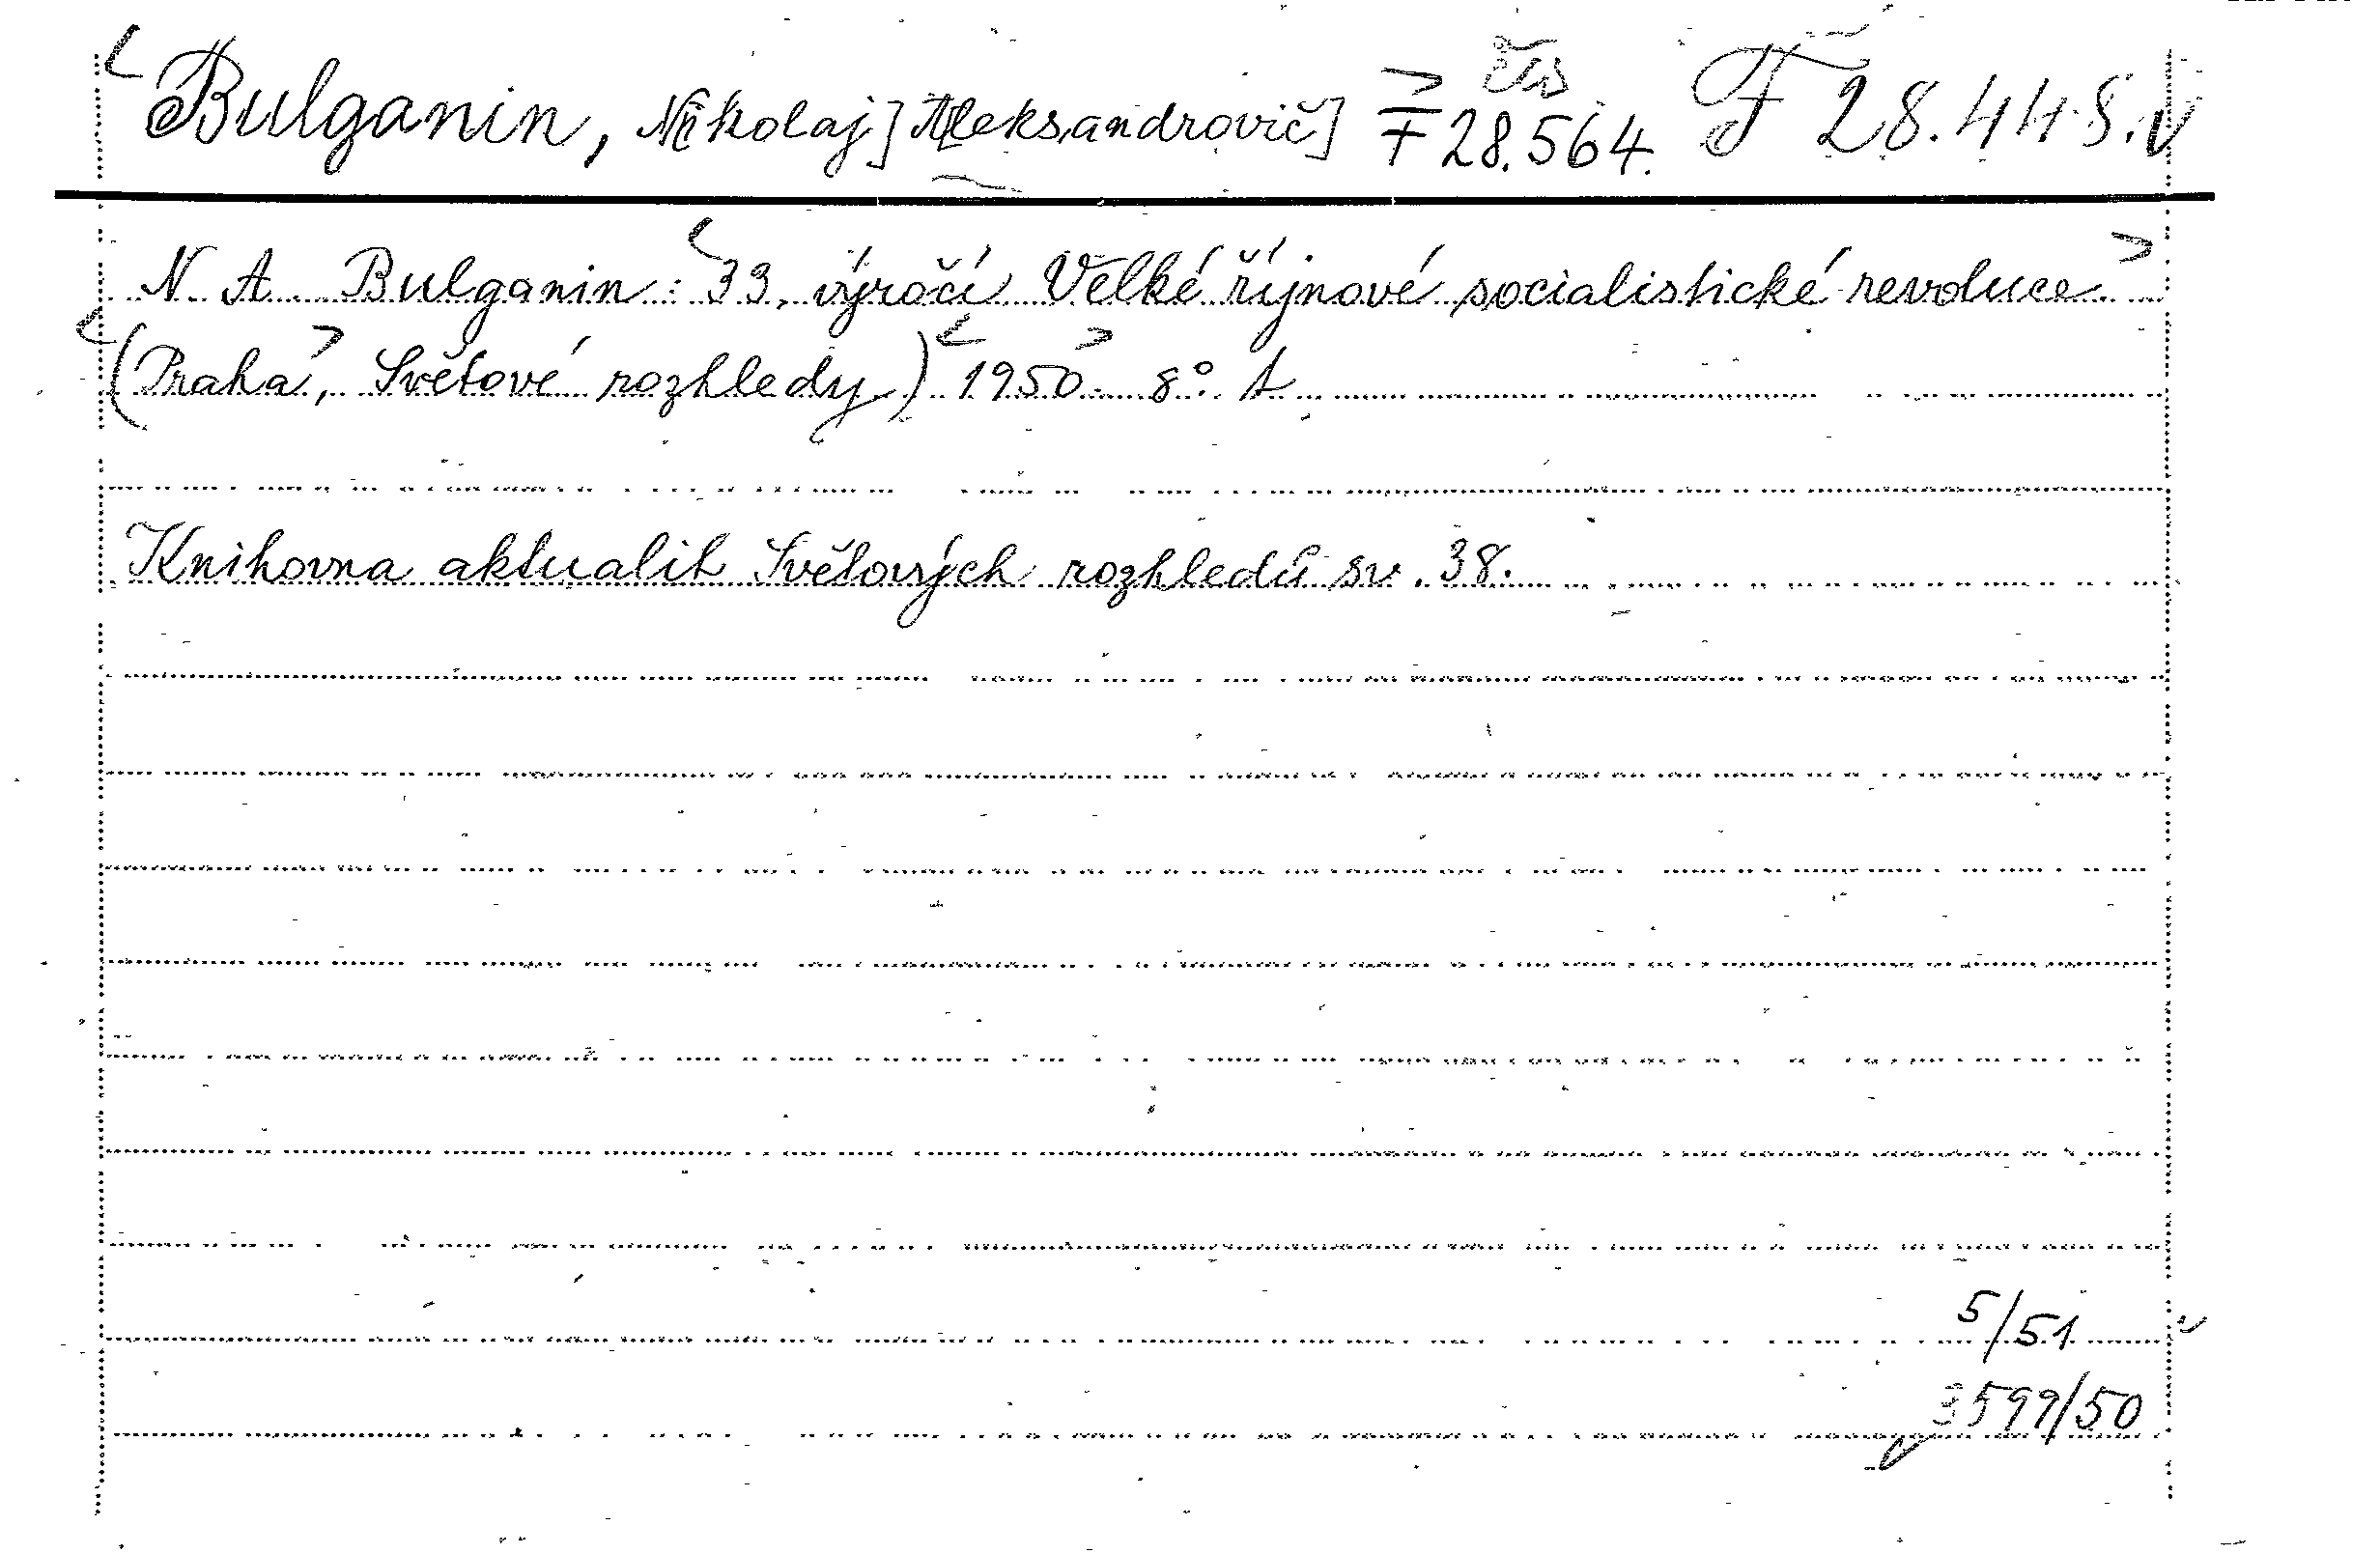 Bulganin, N[ikolaj] A[leksandrovič] F 28.564. čís F 28.448.
N. A. Bulganin: 33. výročí Velké říjnové socialistické revoluce
(Praha, Světové rozhledy) 1950. 8°.
Knihovna aktualit Světových rozhledů sv. 38.
5/51
3599/50